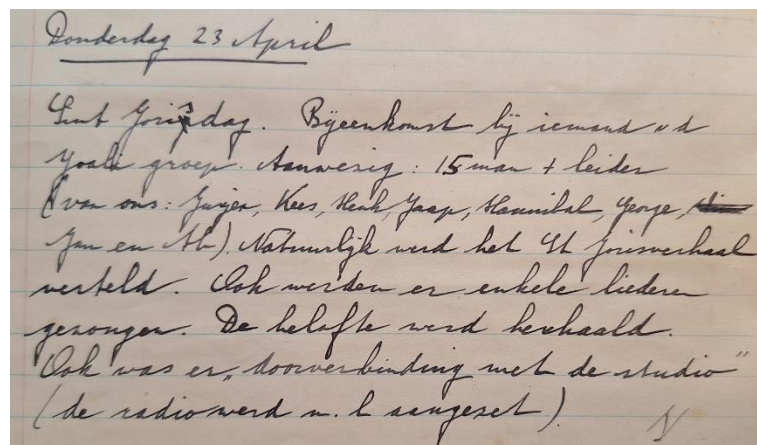 Donderdag 23 April
Sint Jorisdag. Bijeenkomst bij iemand v d
groep. Aanwezig: 15 man + leider
(van ons: Jurjen, Kees, Henk, Jaap, Hannibal, George,
Jan en Ab). Natuurlijk werd het St Jorisverhaal
verteld. Ook werden er enkele liederen
gezongen. De belofte werd herhaald.
Ook was er „doorverbinding met de studio”
(de radio werd n. l aangezet)